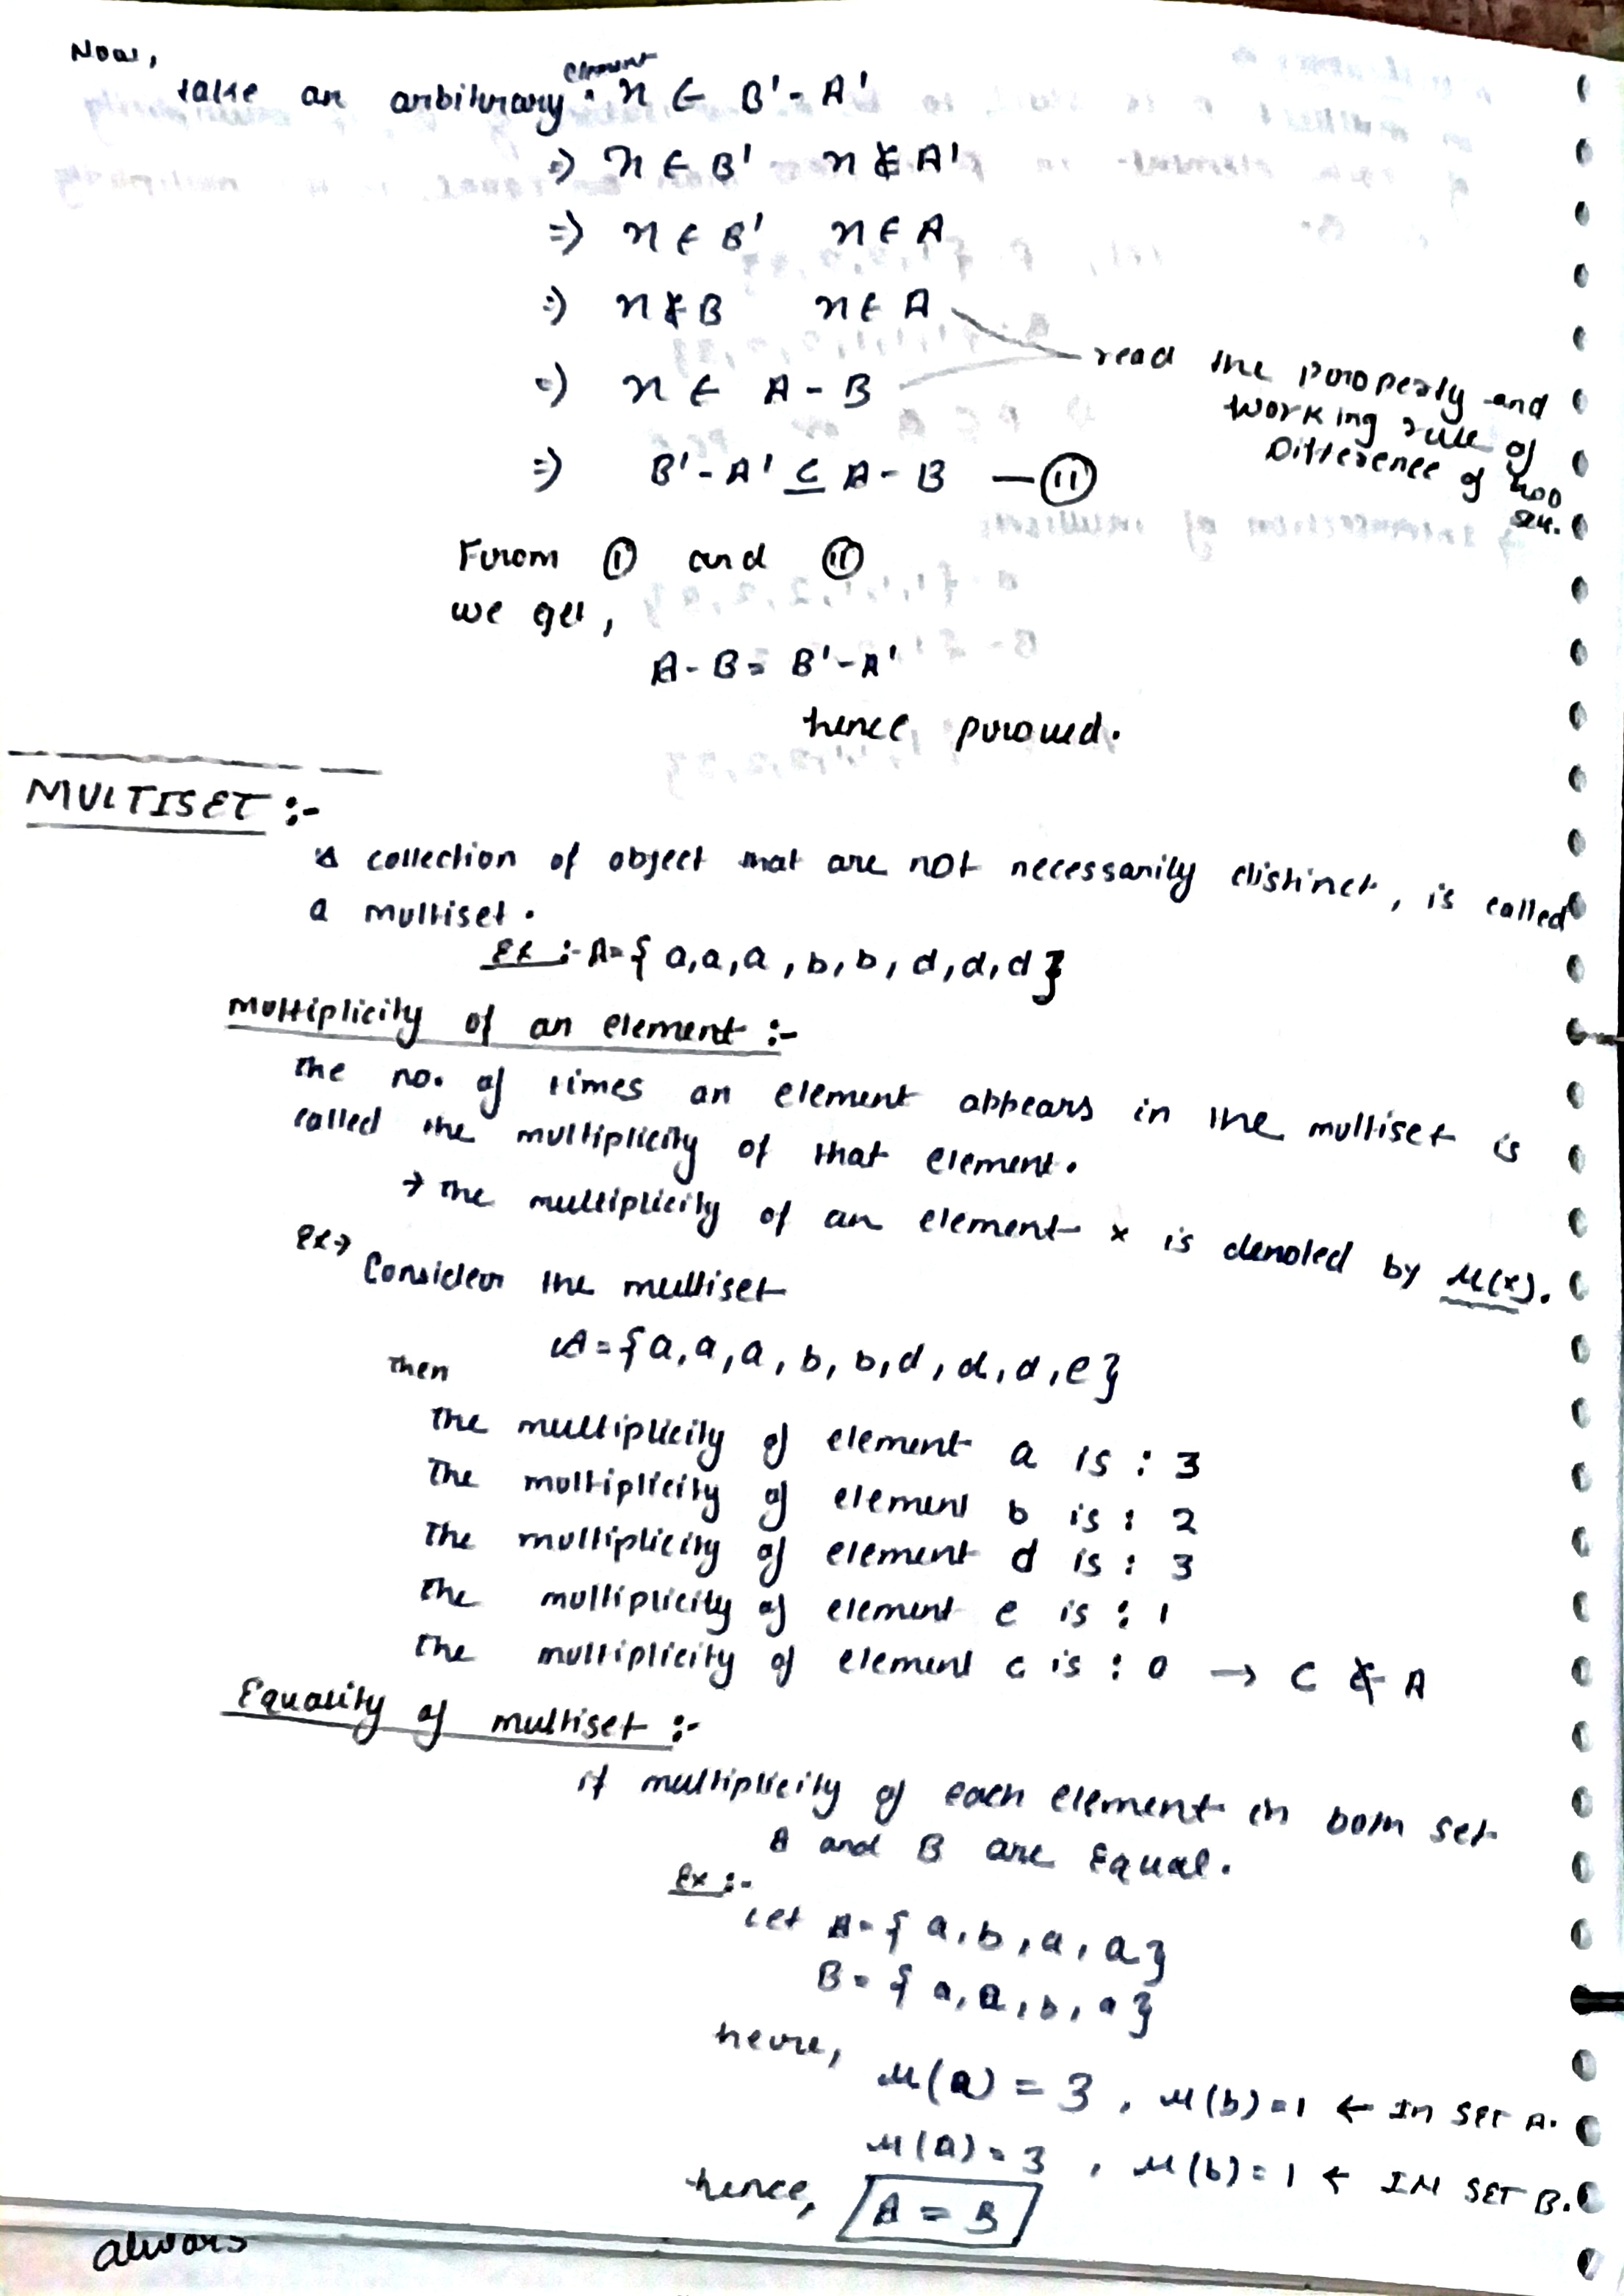 Now,
take an arbitrary element x ∈ B' - A'
⇒ x ∈ B' x ∉ A'
⇒ x ∈ B' x ∈ A
⇒ x ∉ B x ∈ A
⇒ x ∈ A - B
read the property and
working rule of
Difference of two
set.
⇒ B' - A' ⊆ A - B — (ii)
From (i) and (ii)
we get,
A - B = B' - A'
hence proved.
MULTISET :-
A collection of object that are not necessarily distinct, is called
a multiset.
Ex :- A = { a,a,a , b, b, d, d, d }
Multiplicity of an element :-
The no. of times an element appears in the multiset is
called the multiplicity of that element.
→ The multiplicity of an element x is denoted by μ(x).
Ex→ Consider the multiset
A = { a, a, a, b, b, d, d, d, e }
then
The multiplicity of element a is : 3
The multiplicity of element b is : 2
The multiplicity of element d is : 3
The multiplicity of element e is : 1
The multiplicity of element c is : 0 → C ∉ A
Equality of multiset :-
if multiplicity of each element in both set
A and B are Equal.
Ex :-
Let A = { a, b, a, a }
B = { a, a, b, a }
here,
μ(a) = 3 , μ(b) = 1 ← In SET A.
μ(a) = 3 , μ(b) = 1 ← IN SET B.
hence, A = B